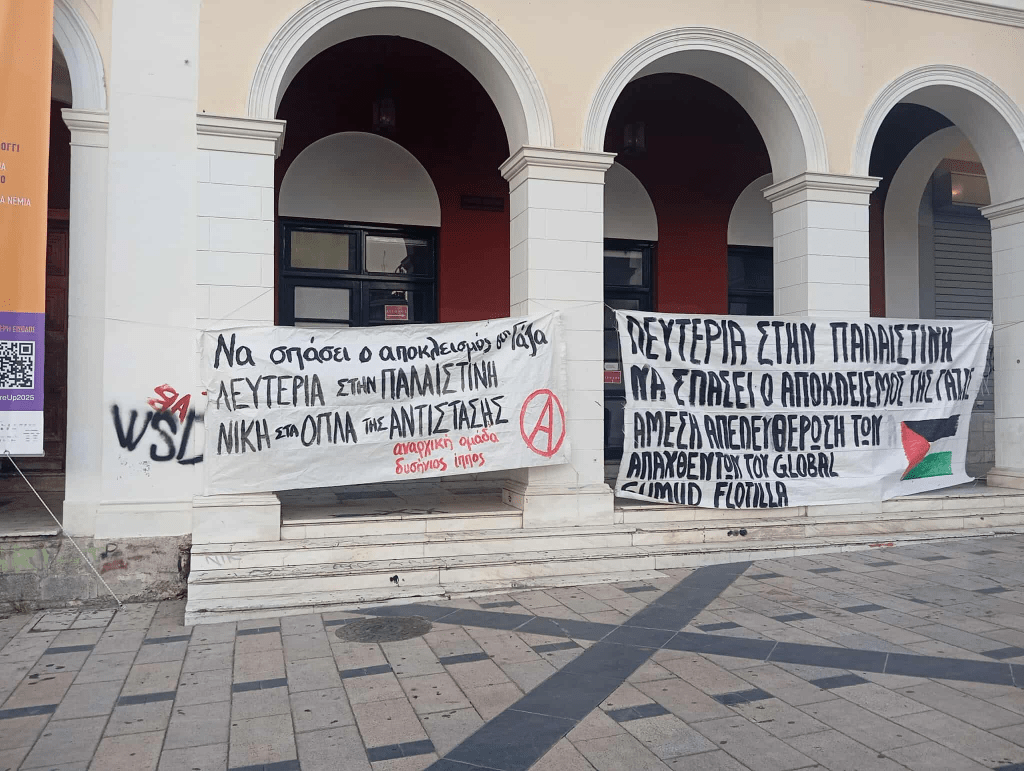 ΟΓΓΙ
ΝΕΜΙΑ
roUp2025
WSL
Να σπάσει ο αποκλεισμός στη Γάζα
ΛΕΥΤΕΡΙΑ ΣΤΗΝ ΠΑΛΑΙΣΤΙΝΗ
ΝΙΚΗ στα ΟΠΛΑ της ΑΝΤΙΣΤΑΣΗΣ
αναρχική ομάδα
δυσήνιος ίππος
A
ΛΕΥΤΕΡΙΑ ΣΤΗΝ ΠΑΛΑΙΣΤΙΝΗ
ΝΑ ΣΠΑΣΕΙ Ο ΑΠΟΚΛΕΙΣΜΟΣ ΤΗΣ ΓΑΖΑΣ
ΑΜΕΣΗ ΑΠΕΛΕΥΘΕΡΩΣΗ ΤΩΝ
ΑΠΑΧΘΕΝΤΩΝ ΤΟΥ GLOBAL
SUMUD FLOTILLA